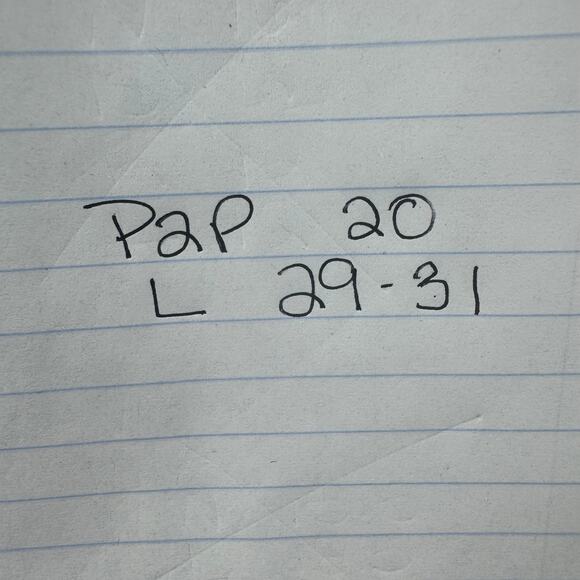 P2P 20
L 29-31